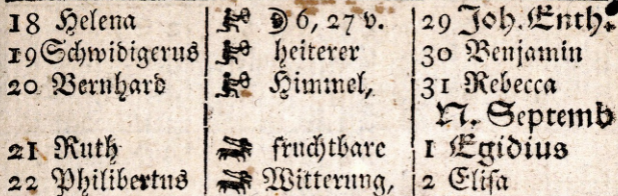 18 Helena 6, 27 v. 29 Joh. Enth.
19 Schwidigerus heiterer 30 Benjamin
20 Bernhard Himmel, 31 Rebecca
N. Septemb
21 Ruth fruchtbare 1 Egidius
22 Philibertus Witterung, 2 Elisa